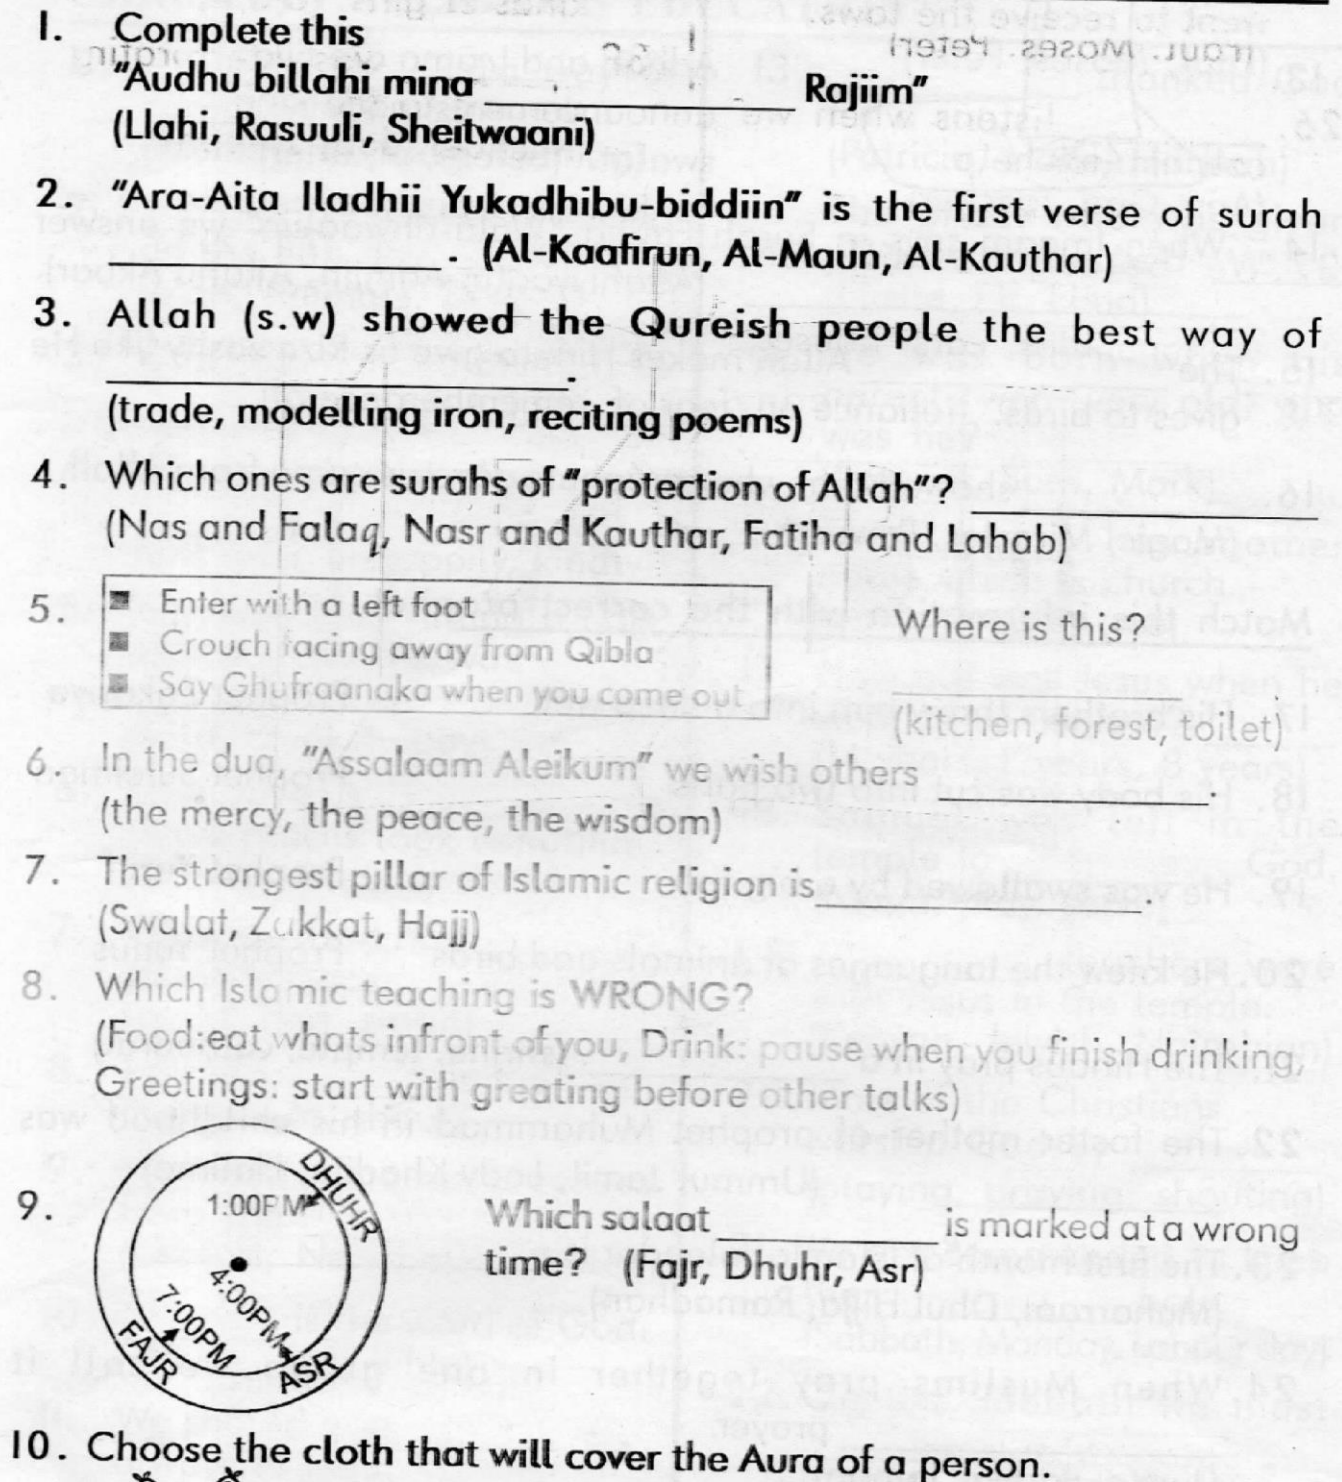 1. Complete this
"Audhu billahi mina ____________ Rajiim"
(Llahi, Rasuuli, Sheitwaani)
2. "Ara-Aita lladhii Yukadhibu-biddiin" is the first verse of surah
____________. (Al-Kaafirun, Al-Maun, Al-Kauthar)
3. Allah (s.w) showed the Qureish people the best way of
____________.
(trade, modelling iron, reciting poems)
4. Which ones are surahs of "protection of Allah"? ____________
(Nas and Falaq, Nasr and Kauthar, Fatiha and Lahab)
5.
■ Enter with a left foot
■ Crouch facing away from Qibla
■ Say Ghufraanaka when you come out
Where is this?
____________
(kitchen, forest, toilet)
6. In the dua, "Assalaam Aleikum" we wish others ____________.
(the mercy, the peace, the wisdom)
7. The strongest pillar of Islamic religion is____________.
(Swalat, Zakkat, Hajj)
8. Which Islamic teaching is WRONG?
(Food:eat whats infront of you, Drink: pause when you finish drinking,
Greetings: start with greating before other talks)
9.
DHUHR
1:00PM
4:00PM
7:00PM
FAJR
ASR
Which salaat ____________ is marked at a wrong
time? (Fajr, Dhuhr, Asr)
10. Choose the cloth that will cover the Aura of a person.